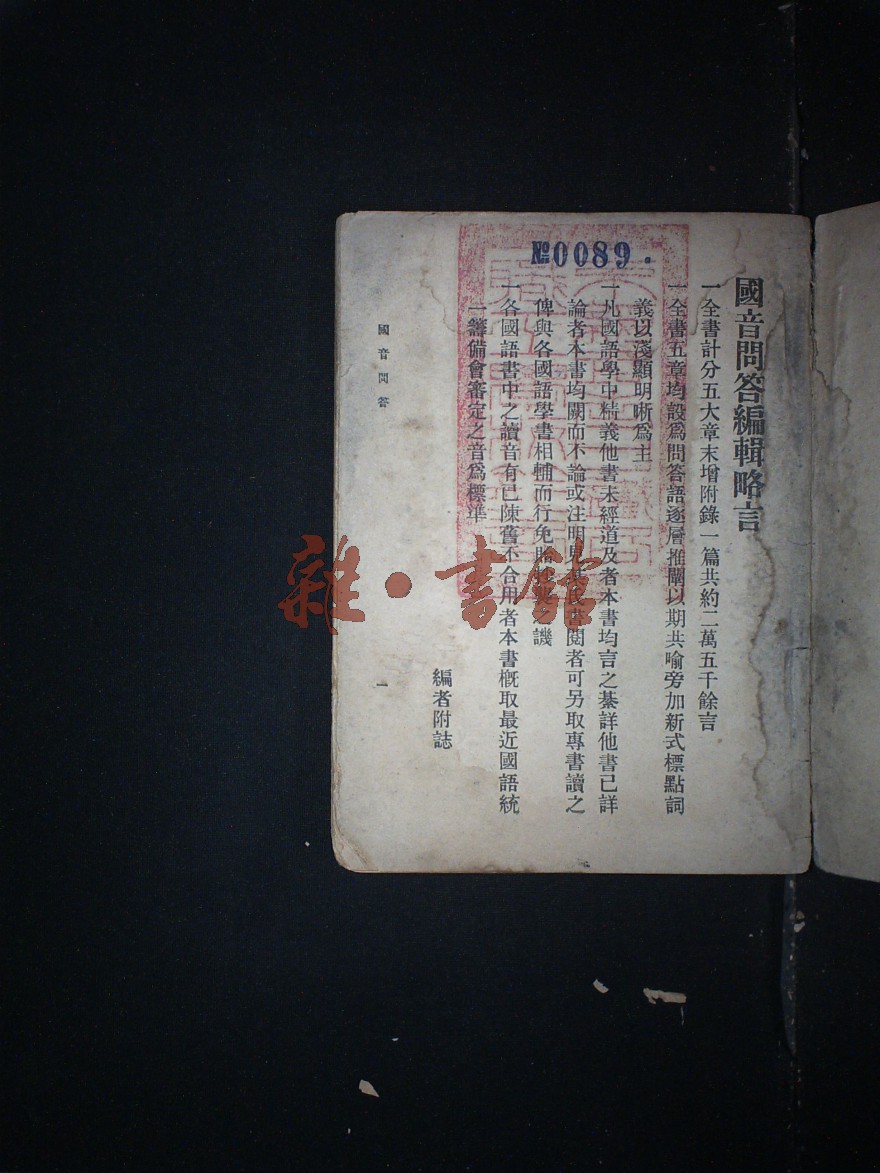 №0089.
國音問答編輯略言
一全書計分五大章末增附錄一篇共約二萬五千餘言
一全書五章均設爲問答語逐層推闡以期共喻旁加新式標點詞
義以淺顯明晰爲主
一凡國語學中精義他書未經道及者本書均言之綦詳他書已詳
論者本書均闕而不論或注明見某氏書閱者可另取專書讀之
俾與各國語學書相輔而行免貽之譏
一各國語書中之讀音有已陳舊不合用者本書槪取最近國語統
一籌備會審定之音爲標準
編者附誌
國音問答
一
雜·書館